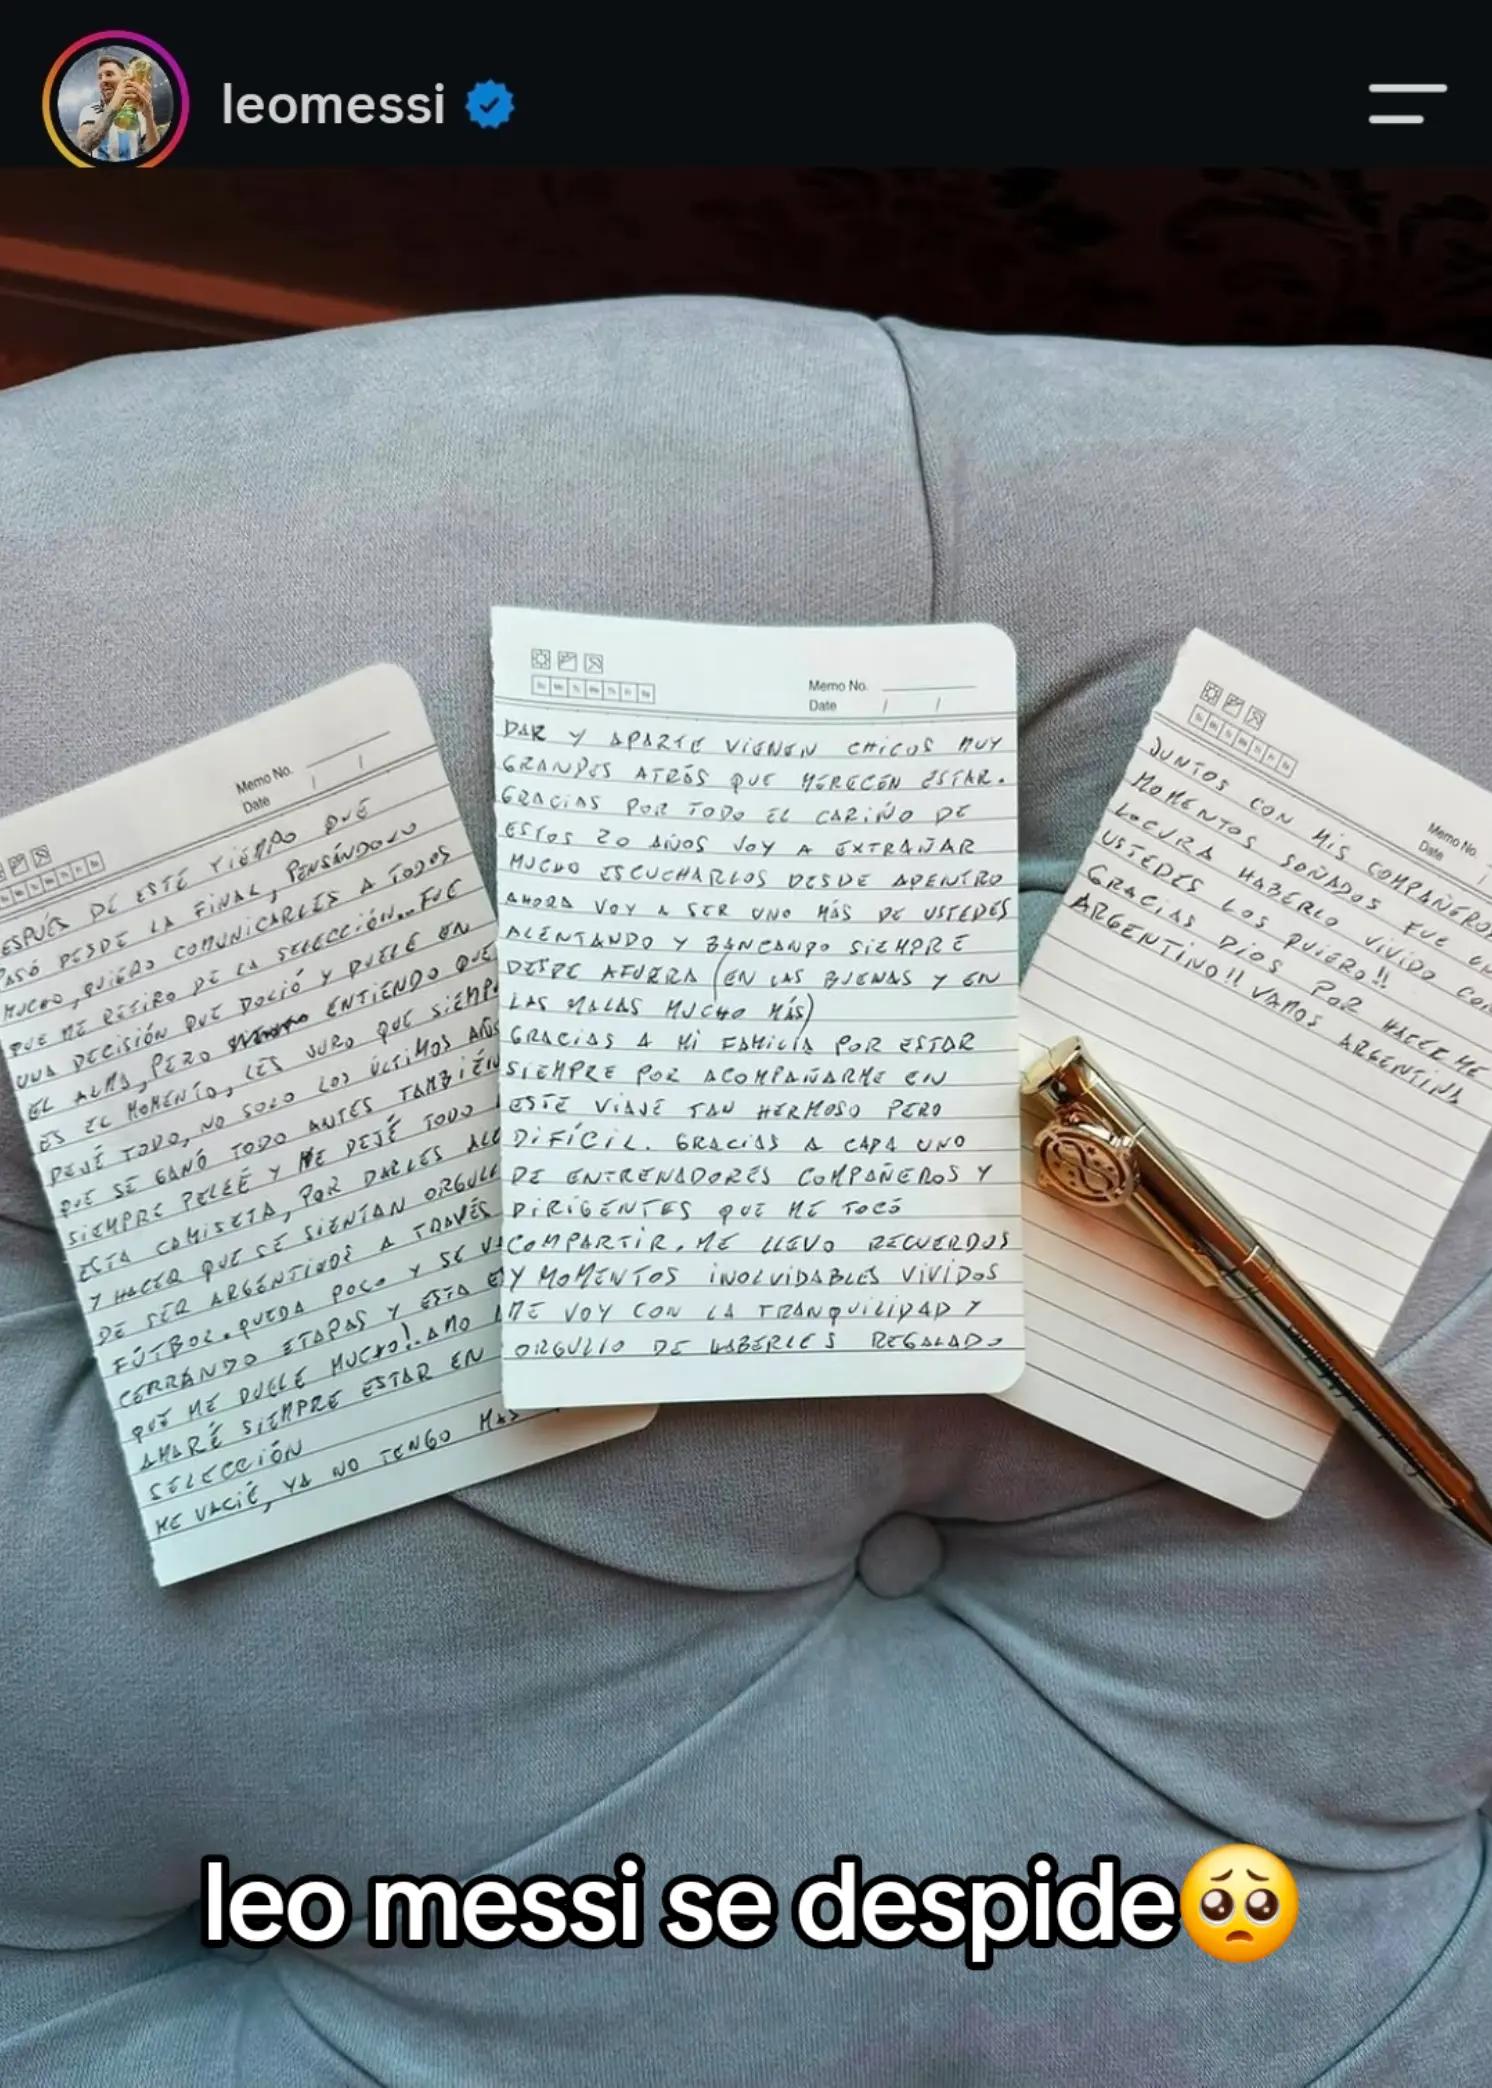 leomessi
Memo No.
Date / /
ESPUÉS DE ESTE TIEMPO QUE
PASÓ DESDE LA FINAL, PENSÁNDOLO
MUCHO, QUIERO COMUNICARLES A TODOS
QUE ME RETIRO DE LA SELECCIÓN... FUE
UNA DECISIÓN QUE DOLIÓ Y DUELE EN
EL ALMA, PERO ENTIENDO QUE
ES EL MOMENTO, LES JURO QUE SIEMP
DEJÉ TODO, NO SOLO LOS ÚLTIMOS AÑOS
QUE SE GANÓ TODO ANTES TAMBIÉN
SIEMPRE PELEÉ Y ME DEJÉ TODO
ESTA CAMISETA, POR DARLES ALE
Y HACER QUE SE SIENTAN ORGULL
DE SER ARGENTINOS A TRAVÉS
FÚTBOL. QUEDA POCO Y SE VA
CERRANDO ETAPAS Y ESTA E
QUE ME DUELE MUCHO!. AMO
AMARÉ SIEMPRE ESTAR EN
SELECCIÓN
ME VACIÉ, YA NO TENGO MAS
Memo No.
Date / /
DAR Y APARTE VIENEN CHICOS MUY
GRANDES ATRÁS QUE MERECEN ESTAR.
GRACIAS POR TODO EL CARIÑO DE
ESTOS 20 AÑOS VOY A EXTRAÑAR
MUCHO ESCUCHARLOS DESDE ADENTRO
AHORA VOY A SER UNO MÁS DE USTEDES
ALENTANDO Y BANCANDO SIEMPRE
DESDE AFUERA (EN LAS BUENAS Y EN
LAS MALAS MUCHO MÁS)
GRACIAS A MI FAMILIA POR ESTAR
SIEMPRE POR ACOMPAÑARME EN
ESTE VIAJE TAN HERMOSO PERO
DIFÍCIL. GRACIAS A CADA UNO
DE ENTRENADORES COMPAÑEROS Y
DIRIGENTES QUE ME TOCÓ
COMPARTIR. ME LLEVO RECUERDOS
Y MOMENTOS INOLVIDABLES VIVIDOS
ME VOY CON LA TRANQUILIDAD Y
ORGULLO DE HABERLES REGALADO
Memo No.
Date
JUNTOS CON MIS COMPAÑEROS
MOMENTOS SOÑADOS FUE UN
LOCURA HABERLO VIVIDO CON
USTEDES LOS QUIERO!!
GRACIAS DIOS POR HACERME
ARGENTINO!! VAMOS ARGENTINA
leo messi se despide🥺